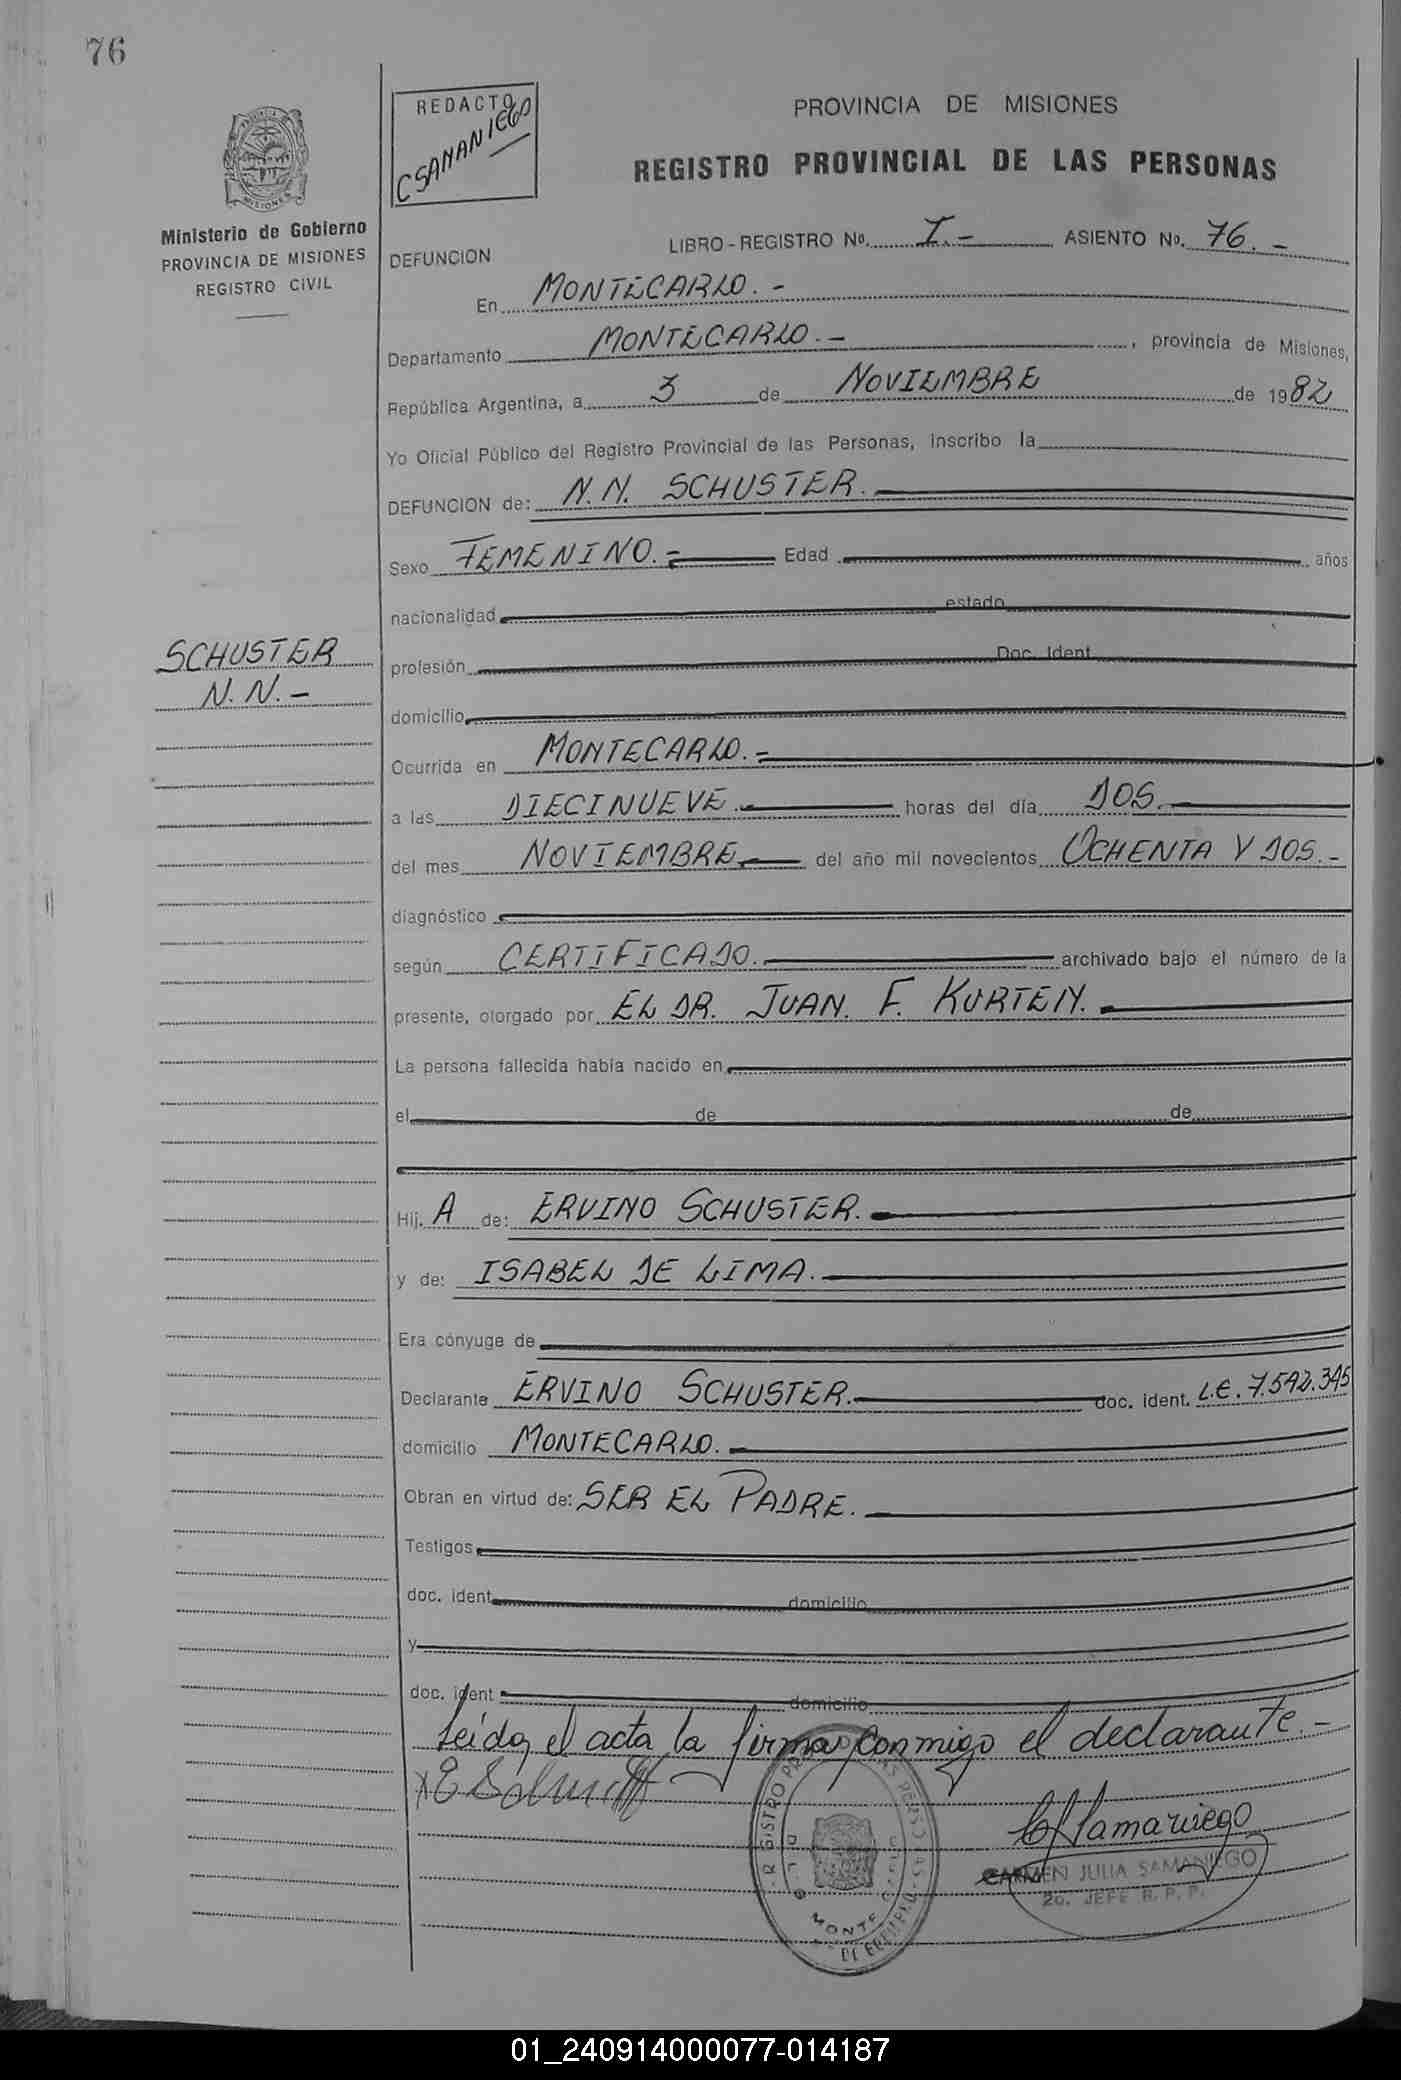 76
REDACTO
CSAMANIEGO
PROVINCIA DE MISIONES
REGISTRO PROVINCIAL DE LAS PERSONAS
Ministerio de Gobierno
PROVINCIA DE MISIONES
REGISTRO CIVIL
DEFUNCION
LIBRO - REGISTRO No. I.- ASIENTO No. 76.-
En MONTECARLO.-
Departamento MONTECARLO.- , provincia de Misiones,
República Argentina, a 3 de NOVIEMBRE de 1982
Yo Oficial Público del Registro Provincial de las Personas, inscribo la
DEFUNCION de: N.N. SCHUSTER.
Sexo FEMENINO.= Edad años
nacionalidad estado
SCHUSTER
N.N.-
profesión Doc. Ident.
domicilio
Ocurrida en MONTECARLO.=
a las DIECINUEVE. horas del día DOS.
del mes NOVIEMBRE. del año mil novecientos OCHENTA Y DOS.-
diagnóstico
según CERTIFICADO. archivado bajo el número de la
presente, otorgado por EL DR. JUAN. F. KURTEN.
La persona fallecida había nacido en
el de de
Hij. A de: ERVINO SCHUSTER.
y de: ISABEL DE LIMA.
Era cónyuge de
Declarante ERVINO SCHUSTER. doc. ident. L.E. 7.592.395
domicilio MONTECARLO.
Obran en virtud de: SER EL PADRE.
Testigos
doc. ident. domicilio
y
doc. ident domicilio
Leída el acta la firma conmigo el declarante.-
CSamaniego
CARMEN JULIA SAMANIEGO
2o. JEFE R. P. P.
01_240914000077-014187